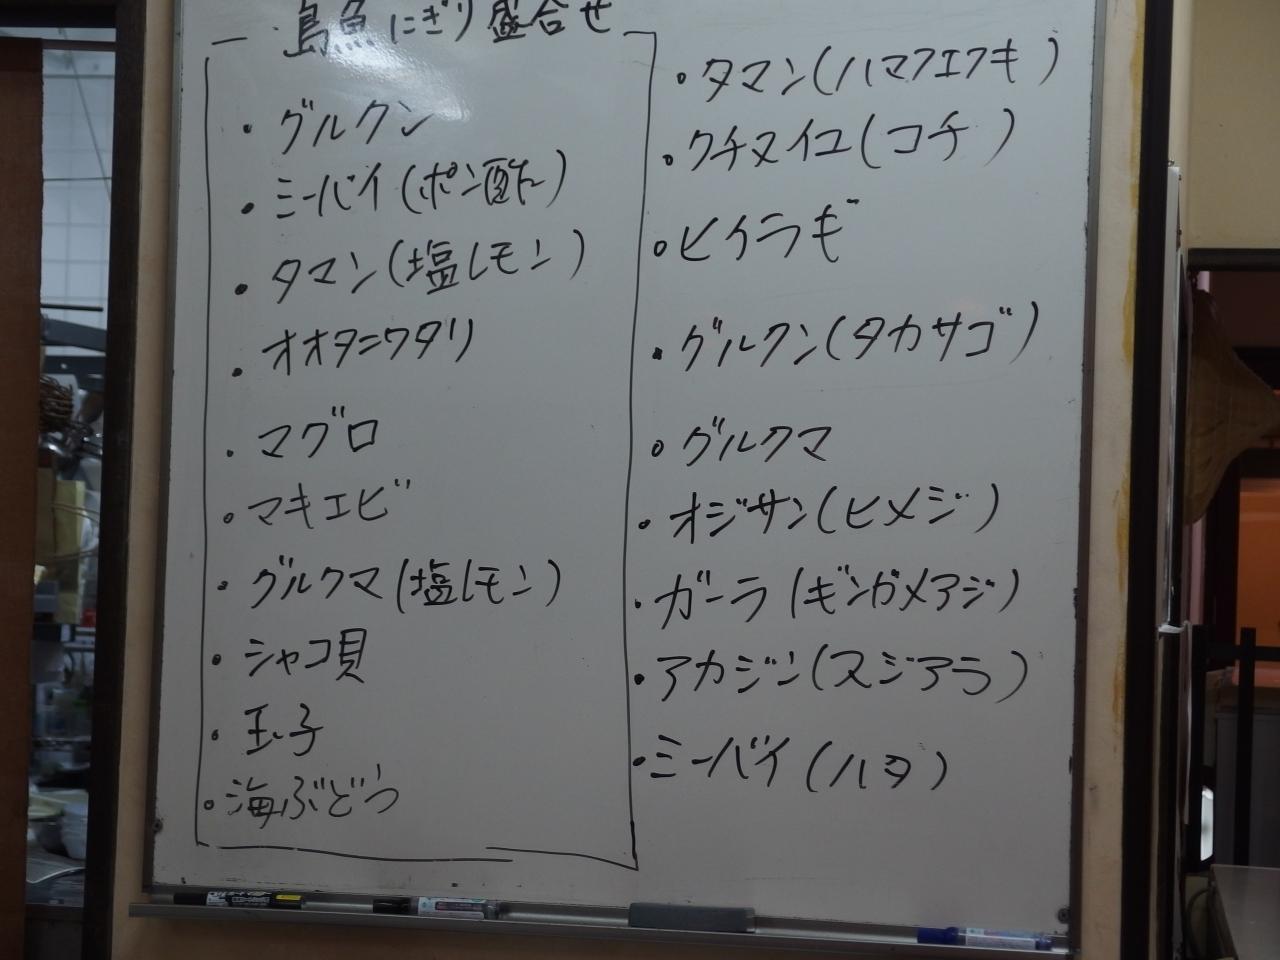 島魚にぎり盛合せ
・グルクン
・ミーバイ(ポン酢)
・タマン(塩レモン)
・オオタニワタリ
・マグロ
・マキエビ
・グルクマ(塩レモン)
・シャコ貝
・玉子
・海ぶどう
・タマン(ハマフエフキ)
・クチヌイユ(コチ)
・ヒイラギ
・グルクン(タカサゴ)
・グルクマ
・オジサン(ヒメジ)
・ガーラ(ギンガメアジ)
・アカジン(スジアラ)
・ミーバイ(ハタ)